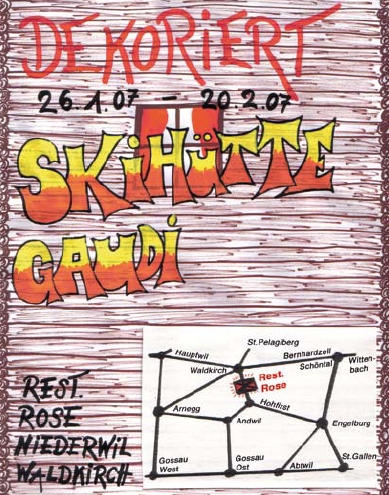 DEKORIERT
26.1.07 - 20.2.07
SKIHÜTTE
GAUDI
REST.
ROSE
NIEDERWIL
WALDKIRCH
St.Pelagiberg
Hauptwil
Bernhardzell
Waldkirch
Schöntal
Witten-
bach
Rest.
Rose
Hohfirst
Arnegg
Andwil
Engelburg
Gossau
West
Gossau
Ost
Abtwil
St.Gallen